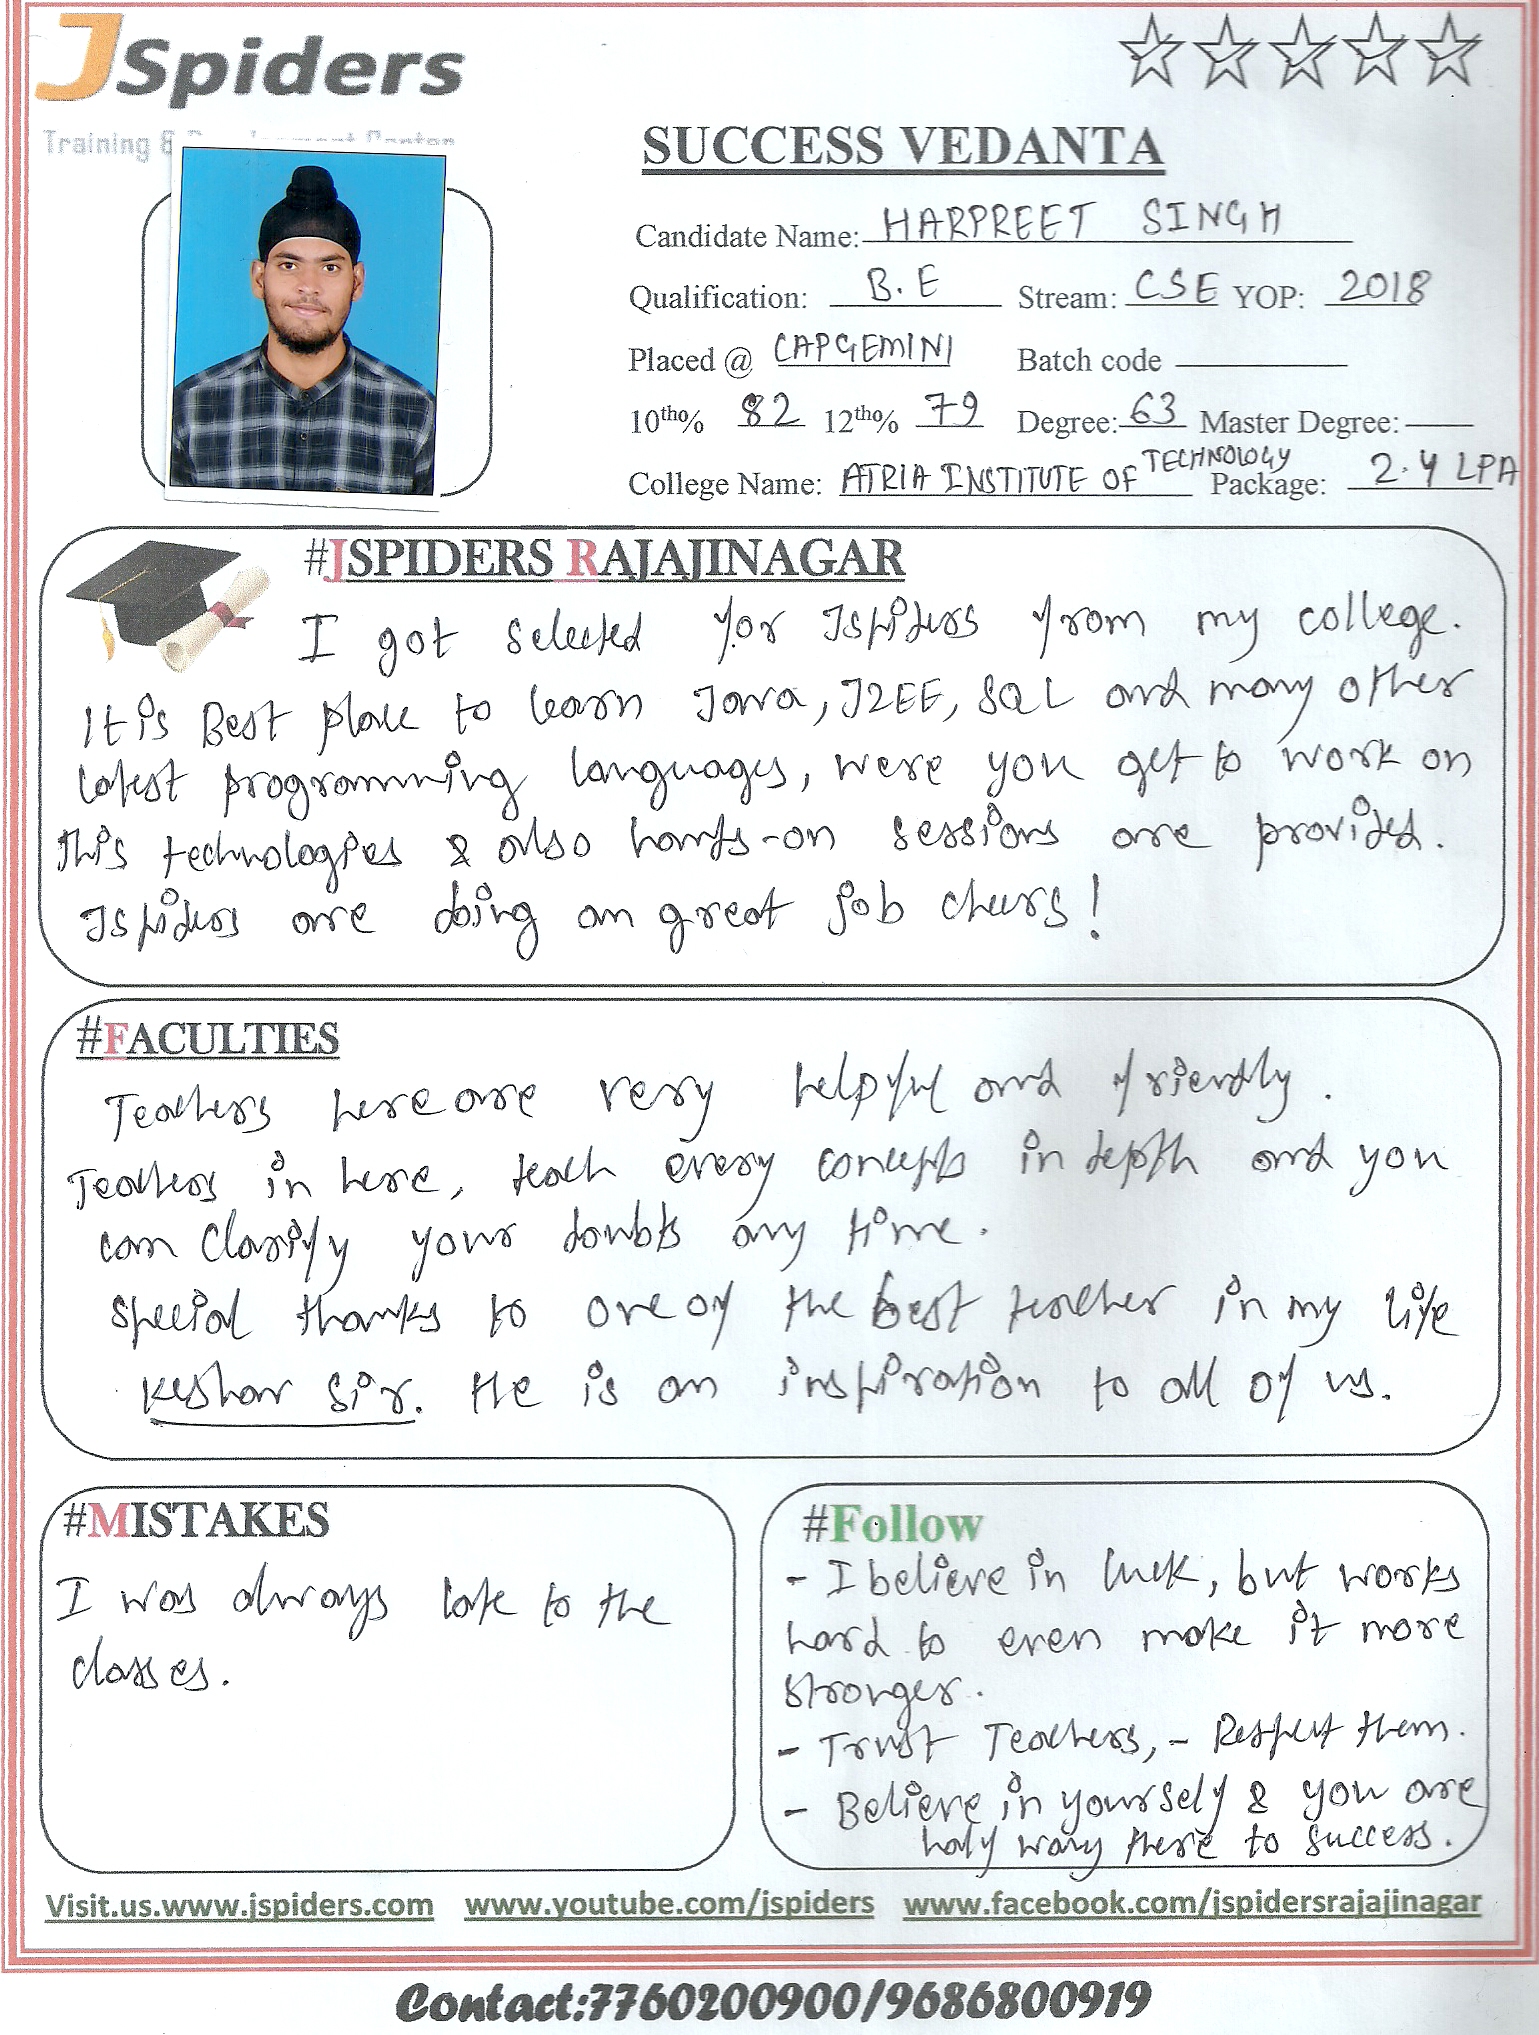 JSpiders
Training & Development Center
SUCCESS VEDANTA
Candidate Name: HARPREET SINGH
Qualification: B.E Stream: CSE YOP: 2018
Placed @ CAPGEMINI Batch code
10th% 82 12th% 79 Degree: 63 Master Degree:
College Name: ATRIA INSTITUTE OF TECHNOLOGY Package: 2.4 LPA
#JSPIDERS RAJAJINAGAR
I got selected for Jspiders from my college.
It is Best place to learn Java, J2EE, SQL and many other
latest programming languages, were you get to work on
this technologies & also hands-on sessions are provided.
Jspiders are doing an great job cheers!
#FACULTIES
Teachers here are very helpful and friendly.
Teachers in here, teach every concepts in depth and you
can clarify your doubts any time.
Special thanks to one of the best teacher in my life
Keshav Sir. He is an inspiration to all of us.
#MISTAKES
I was always late to the
classes.
#Follow
- I believe in luck, but works
hard to even make it more
stronger.
- Trust Teachers, - Respect them.
- Believe in yourself & you are
half way there to success.
Visit.us.www.jspiders.com www.youtube.com/jspiders www.facebook.com/jspidersrajajinagar
Contact:7760200900/9686800919